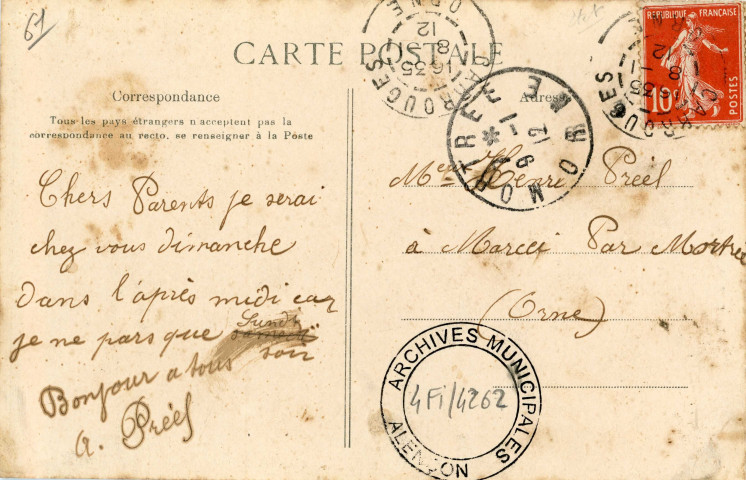 61
CARTE POSTALE
Correspondance
Tous les pays étrangers n'acceptent pas la
correspondance au recto, se renseigner à la Poste
Chers Parents je serai
chez vous dimanche
dans l'après midi car
je ne pars que Lundi
samedi soir
Bonjour a tous
a. Préel
Adresse
Mr Henri Préel
à Marcei Par Mortrée
(Orne)
RÉPUBLIQUE FRANÇAISE
10
POSTES
CARROUGES
ORNE
16 35
8
12
CARROUGES
16 35
8
12
MORTRÉE ORNE
9 -1
12
ARCHIVES MUNICIPALES
4Fi/4262
ALENÇON